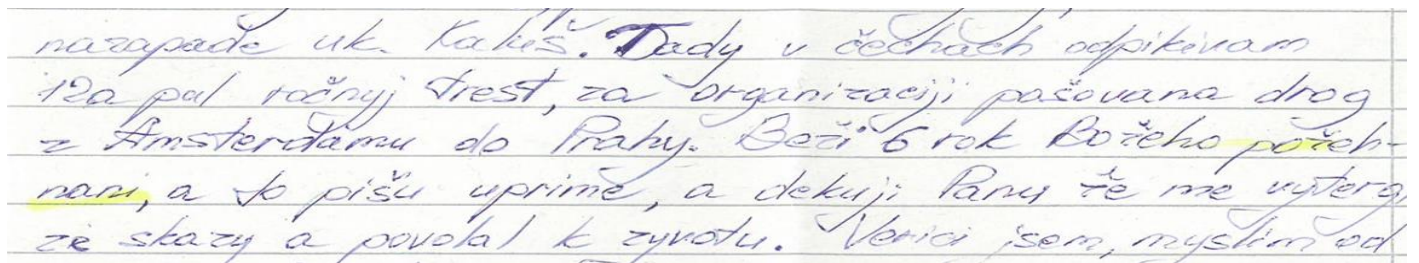 nazapade uk. Kališ. Tady v čechach odpikivam
12a pul ročnyj trest, za organizaciji pašovana drog
z Amsterdamu do Prahy. Beži 6 rok Božeho požeh-
nani, a to pišu uprime, a dekuji Panu že me vyterg
ze skazy a povolal k zyvotu. Verici jsem, myslim od